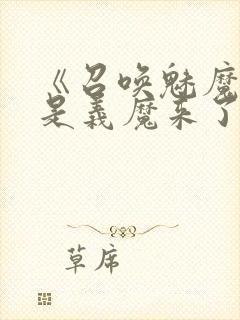 《召唤魅魔
是义魔来了
草席